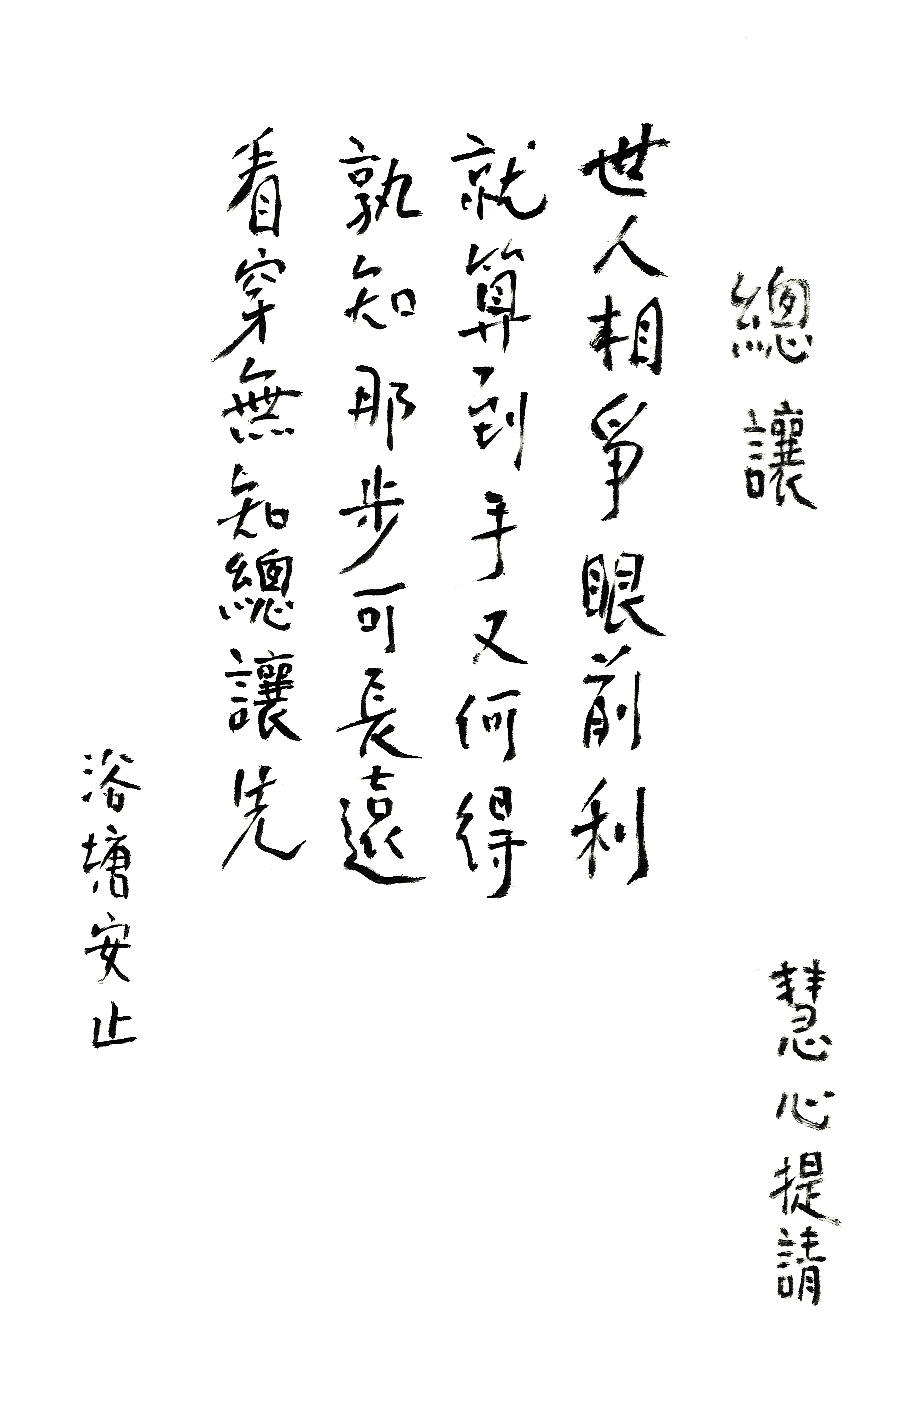 總讓
慧心提請
世人相爭眼前利
就算到手又何得
孰知那步可長遠
看穿無知總讓先
浴塘安止